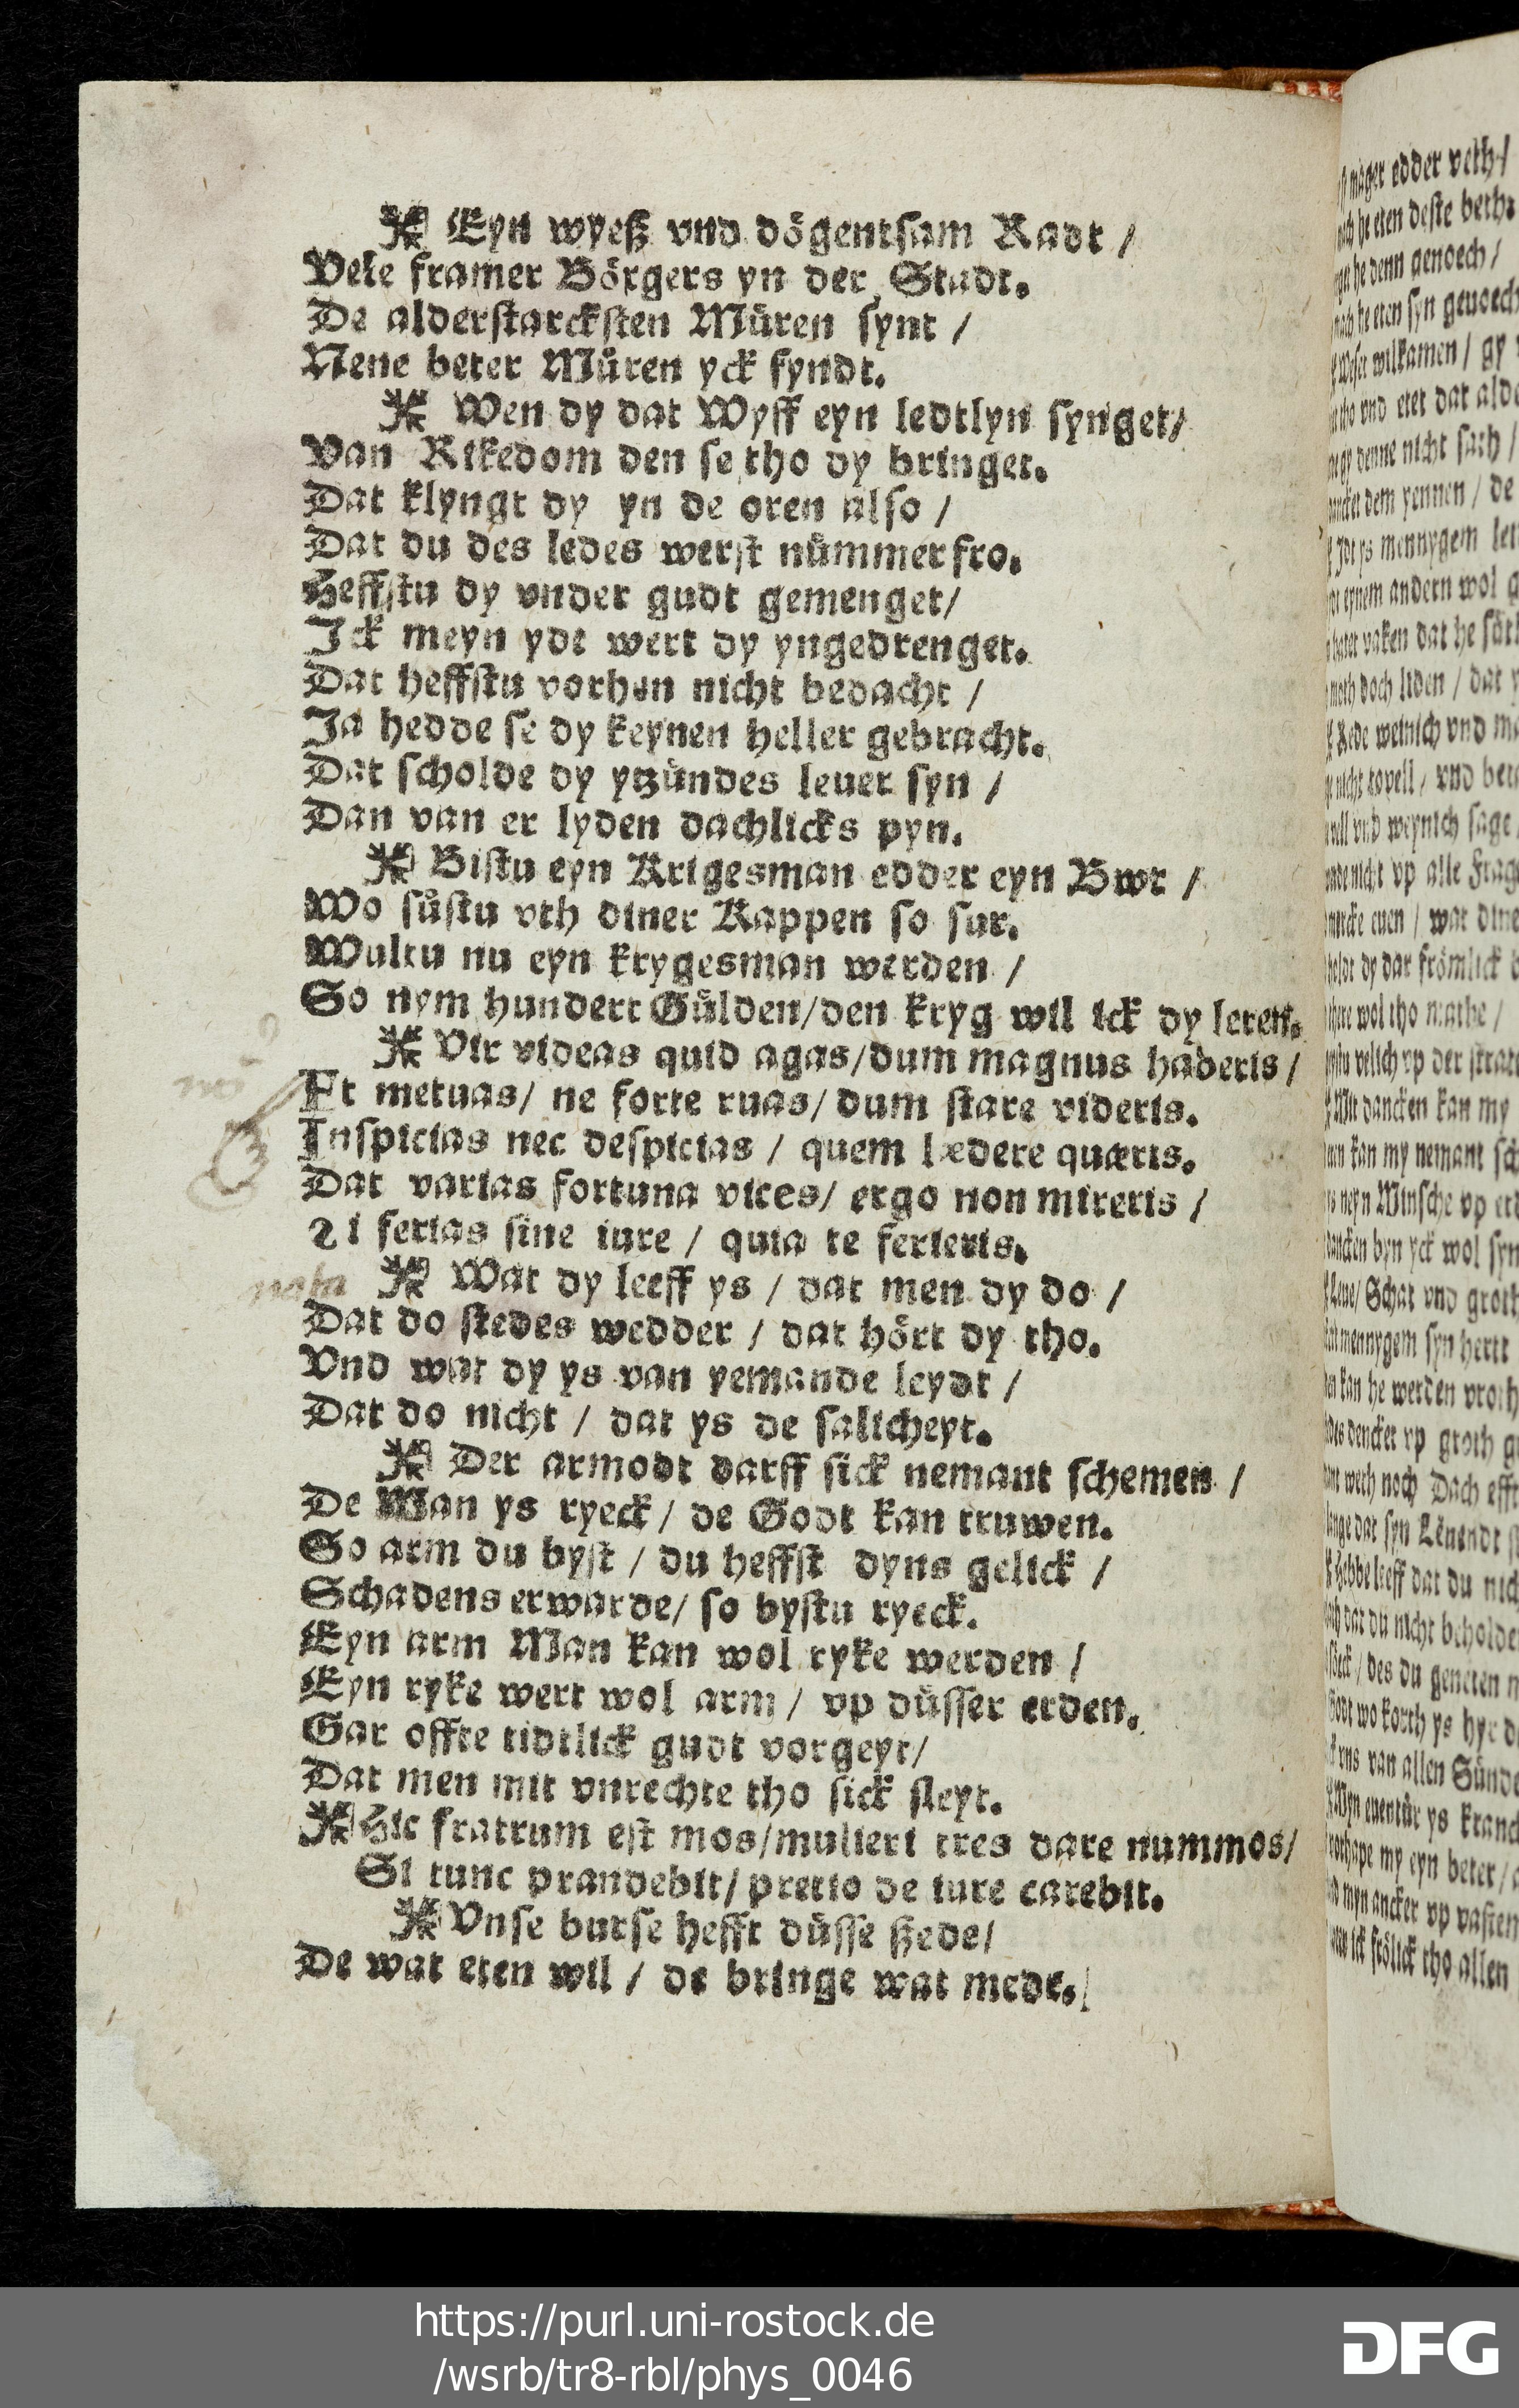 Eyn wyeß vnd dögentsam Radt /
Vele framer Börgers yn der Stadt.
De alderstarcksten Müren synt /
Nene beter Müren yck fyndt.
Wen dy dat Wyff eyn ledtlyn synget/
Van Rikedom den se tho dy bringet.
Dat klyngt dy yn de oren also /
Dat du des ledes werst nümmer fro.
Heffstu dy vnder gudt gemenget/
Ick meyn ydt wert dy yngedrenget.
Dat heffstu vorhen nicht bedacht /
Ja hedde se dy keynen heller gebracht.
Dat scholde dy ytzündes leuer syn /
Dan van er lyden dachlicks pyn.
Bistu eyn Krigesman edder eyn Bwr /
Wo süstu vth diner Kappen so sur.
Wultu nu eyn krygesman werden /
So nym hundert Gülden/den kryg wil ick dy leren.
Vir videas quid agas/dum magnus haberis /
Et metuas/ ne forte ruas/ dum stare videris.
Inspicias nec despicias / quem lædere quæris.
Dat varias fortuna vices/ ergo non mireris /
Si ferias sine iure / quia te ferieris.
nota Wat dy leeff ys / dat men dy do /
Dat do stedes wedder / dat hört dy tho.
Vnd wat dy ys van yemande leydt /
Dat do nicht / dat ys de salicheyt.
Der armodt darff sick nemant schemen /
De Man ys ryeck / de Godt kan truwen.
So arm du byst / du heffst dyns gelick /
Schadens erwarde/ so bystu ryeck.
Eyn arm Man kan wol ryke werden /
Eyn ryke wert wol arm / vp düsser erden.
Gar offte tidtlick gudt vorgeyt/
Dat men mit vnrechte tho sick sleyt.
Hic fratrum est mos/mulieri tres dare nummos/
Si tunc prandebit/ pretio de iure carebit.
Vnse burse hefft düsse ßede/
De wat eten wil / de bringe wat mede.
https://purl.uni-rostock.de
/wsrb/tr8-rbl/phys_0046
DFG